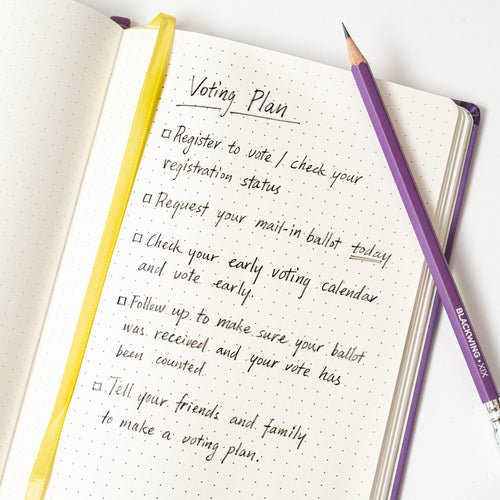 Voting Plan
Register to vote / check your
registration status
Request your mail-in ballot today
Check your early voting calendar
and vote early.
Follow up to make sure your ballot
was received and your vote has
been counted
Tell your friends and family
to make a voting plan.
BLACKWING • XIX